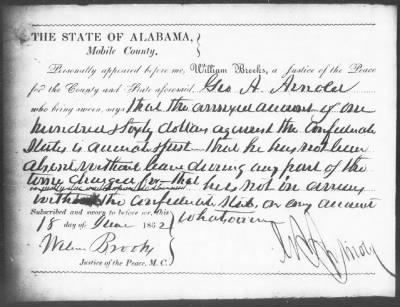 THE STATE OF ALABAMA,
Mobile County.
Personally appeared before me, William Brooks, a Justice of the Peace
for the County and State aforesaid Geo. A. Arnold
who being sworn, says that the annexed account of one
hundred & sixty dollars against the Confederate
States is accurate & just that he has not been
absent without leave during any part of the
time charged for that he is not in arrears
with the Confederate States, on any account
whatsoever
Subscribed and sworn to before me, this
18 day of June 1862
Wm Brooks
Justice of the Peace, M. C.